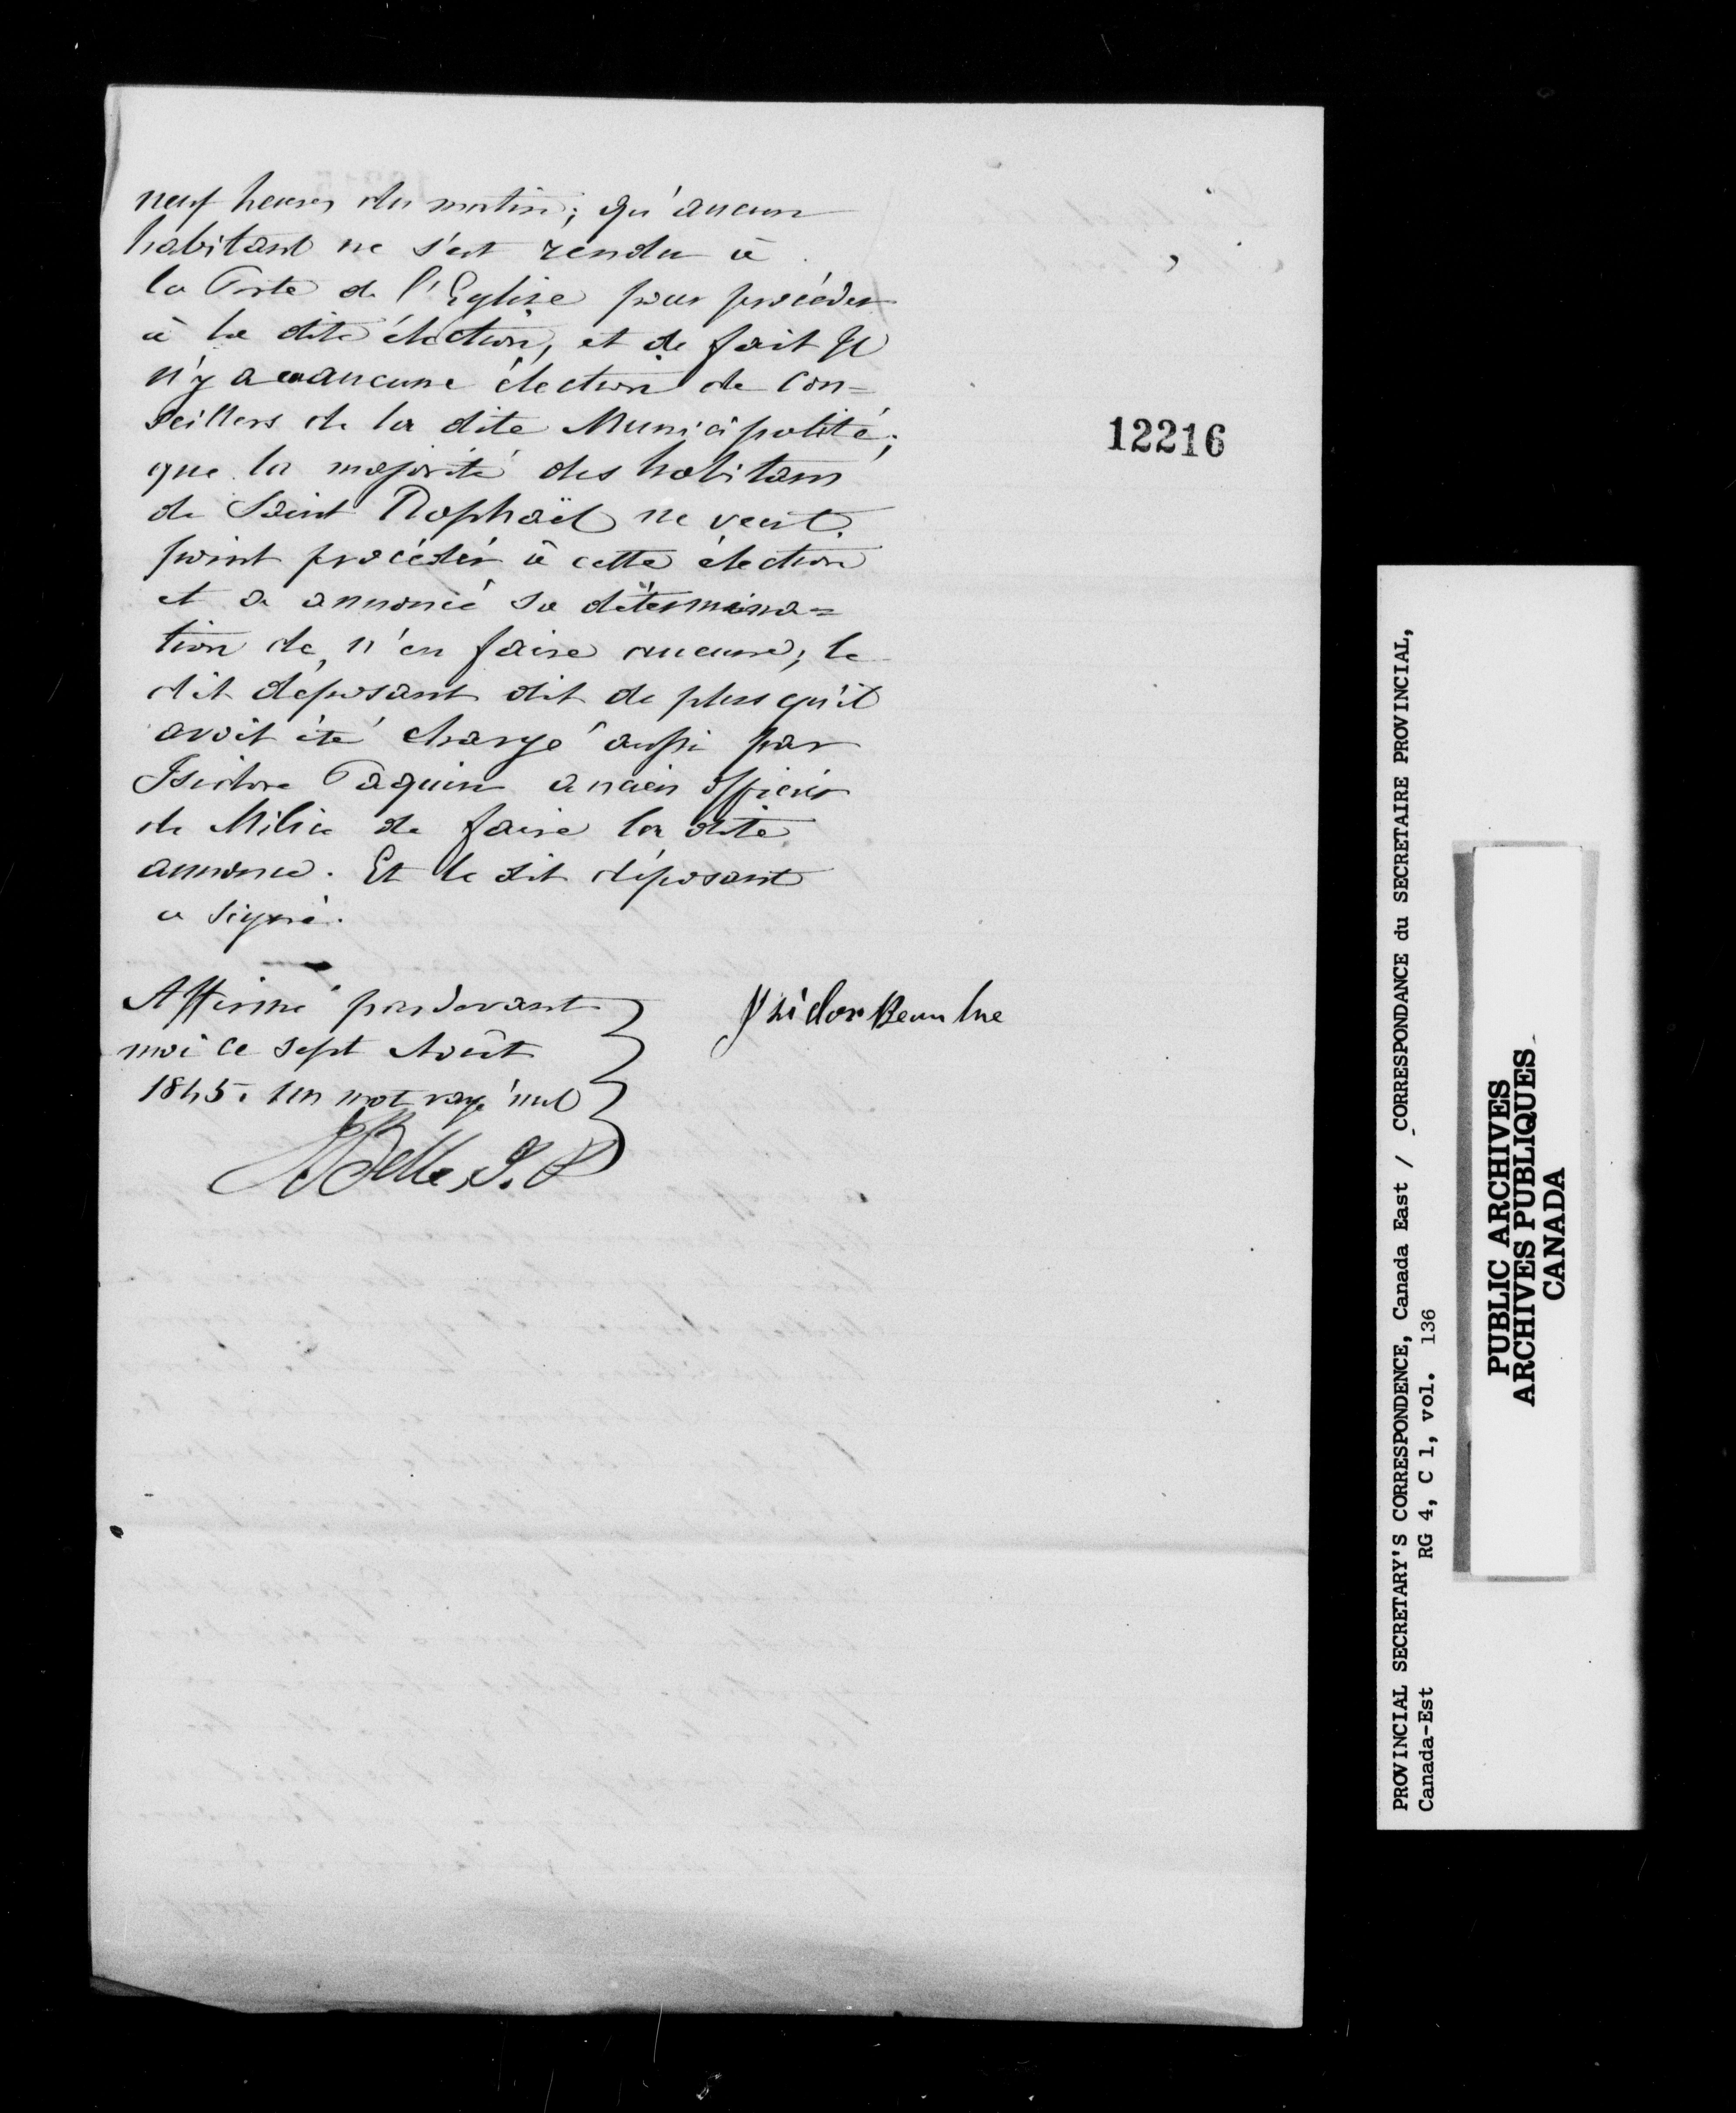 neuf heures du matin; qu'aucun
habitant ne s'est rendu à
la Porte de l'Eglise pour procéder
à la dite élection, et de fait Il
n'y a eu aucune élection de Con=
seillers de la dite Municipalité;
que la majorité des habitans
de Saint Raphaël ne veut
point procéder à cette élection
et a annoncé sa détermina=
tion de n'en faire aucune; le
dit déposant dit de plus qu'il
avoit été chargé aussi par
Isidore Paquin ancien officier
de Milice de faire la dite
annonce. Et le dit déposant
a signé.
Affirmé pardevant
moi ce sept Août
1845. un mot rayé nul
Ysidore Beaulne
Belle, J. P
12216
PROVINCIAL SECRETARY'S CORRESPONDENCE, Canada East / CORRESPONDANCE du SECRETAIRE PROVINCIAL,
Canada-Est RG 4, C 1, vol. 136
PUBLIC ARCHIVES
ARCHIVES PUBLIQUES
CANADA